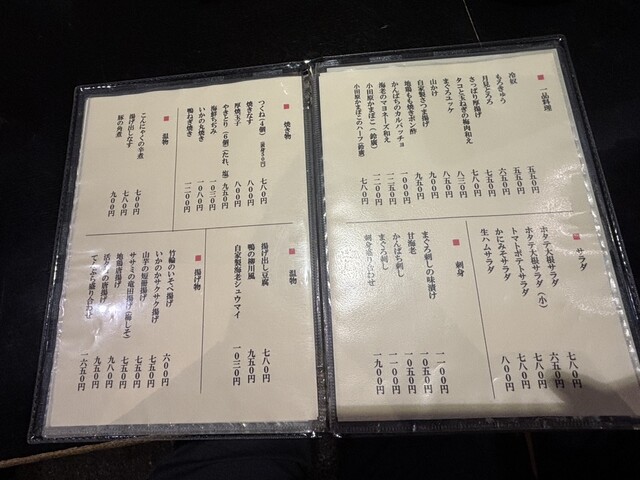 ■ 一品料理
冷奴 五五〇円
もろきゅう 五五〇円
月見とろろ 六五〇円
さっぱり厚揚げ 七五〇円
タコと玉ねぎの梅肉和え 七八〇円
まぐろユッケ 八三〇円
山かけ 八五〇円
自家製さつま揚げ 九五〇円
地鶏もも焼きポン酢 一〇〇〇円
かんぱちのカルパッチョ
海老のマヨネーズ和え
小田原かまぼこ（鈴廣）
小田原かまぼこのハーフ（鈴廣） 七八〇円
■ サラダ
ホタテ大根サラダ 七八〇円
ホタテ大根サラダ（小） 六五〇円
トマトポテトサラダ 七八〇円
かにみそサラダ 七八〇円
生ハムサラダ 八〇〇円
■ 刺身
まぐろ刺しの味漬け 一一〇〇円
甘海老 一〇五〇円
かんぱち刺し 一〇五〇円
まぐろ刺し 一一〇〇円
刺身盛り合わせ 一九〇〇円
■ 焼き物
つくね（4個） 七八〇円
焼きなす 八〇〇円
厚焼玉子 八〇〇円
やきとり（6個）（たれ、塩） 九五〇円
海鮮ちぢみ 一〇三〇円
いかの丸焼き 一〇八〇円
鴨ねぎ焼き
■ 温物
こんにゃくの辛煮 七〇〇円
揚げ出しなす 七八〇円
豚の角煮 九〇〇円
■ 温物
揚げ出し豆腐 七八〇円
鴨の柳川風 九五〇円
自家製海老シュウマイ 一〇三〇円
■ 揚げ物
竹輪のいそべ揚げ 六〇〇円
いかのかサクサク揚げ 七五〇円
山芋の短冊揚げ 七五〇円
ササミの竜田揚げ(梅しそ) 七五〇円
地鶏唐揚げ 九八〇円
の唐揚げ 九五〇円
てんぷら盛り合わせ 一六五〇円